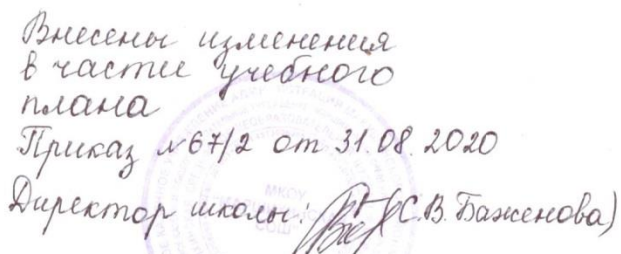 Внесены изменения
в части учебного
плана
Приказ №67/2 от 31.08.2020
Директор школы: (С.В. Баженова)
МКОУ
СОШ